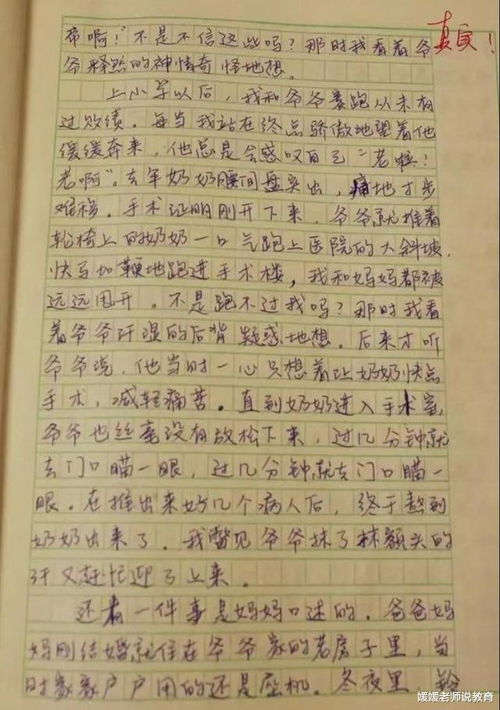 帝啊！"不是不信这些吗？那时我看着爷
真实！
爷释然的神情奇怪地想。
上小学以后，我和爷爷赛跑从未有
过败绩。每当我站在终点骄傲地望着他
缓缓奔来，他总是会感叹自己"老啦！
老啊"。去年奶奶腰间盘突出，痛地寸步
难移。手术证明刚开下来，爷爷就推着
轮椅上的奶奶一口气跑上医院的大斜坡，
快马加鞭地跑进手术楼，我和妈妈都被
远远甩开。不是跑不过我吗？那时我看
着爷爷汗湿的后背疑惑地想。后来才听
爷爷说，他当时一心只想着让奶奶快点
手术，减轻痛苦。直到奶奶进入手术室，
爷爷也丝毫没有放松下来，过几分钟就
去门口瞄一眼，过几分钟就去门口瞄一
眼。在推出来好几个病人后，终于熬到
奶奶出来了。我瞥见爷爷抹了抹额头的
汗又赶忙迎了上来。
还有一件事是妈妈口述的。爸爸妈
妈刚结婚就住在爷爷家的老房子里，当
时家家户户用的还是座机。冬夜里，铃
媛媛老师说教育